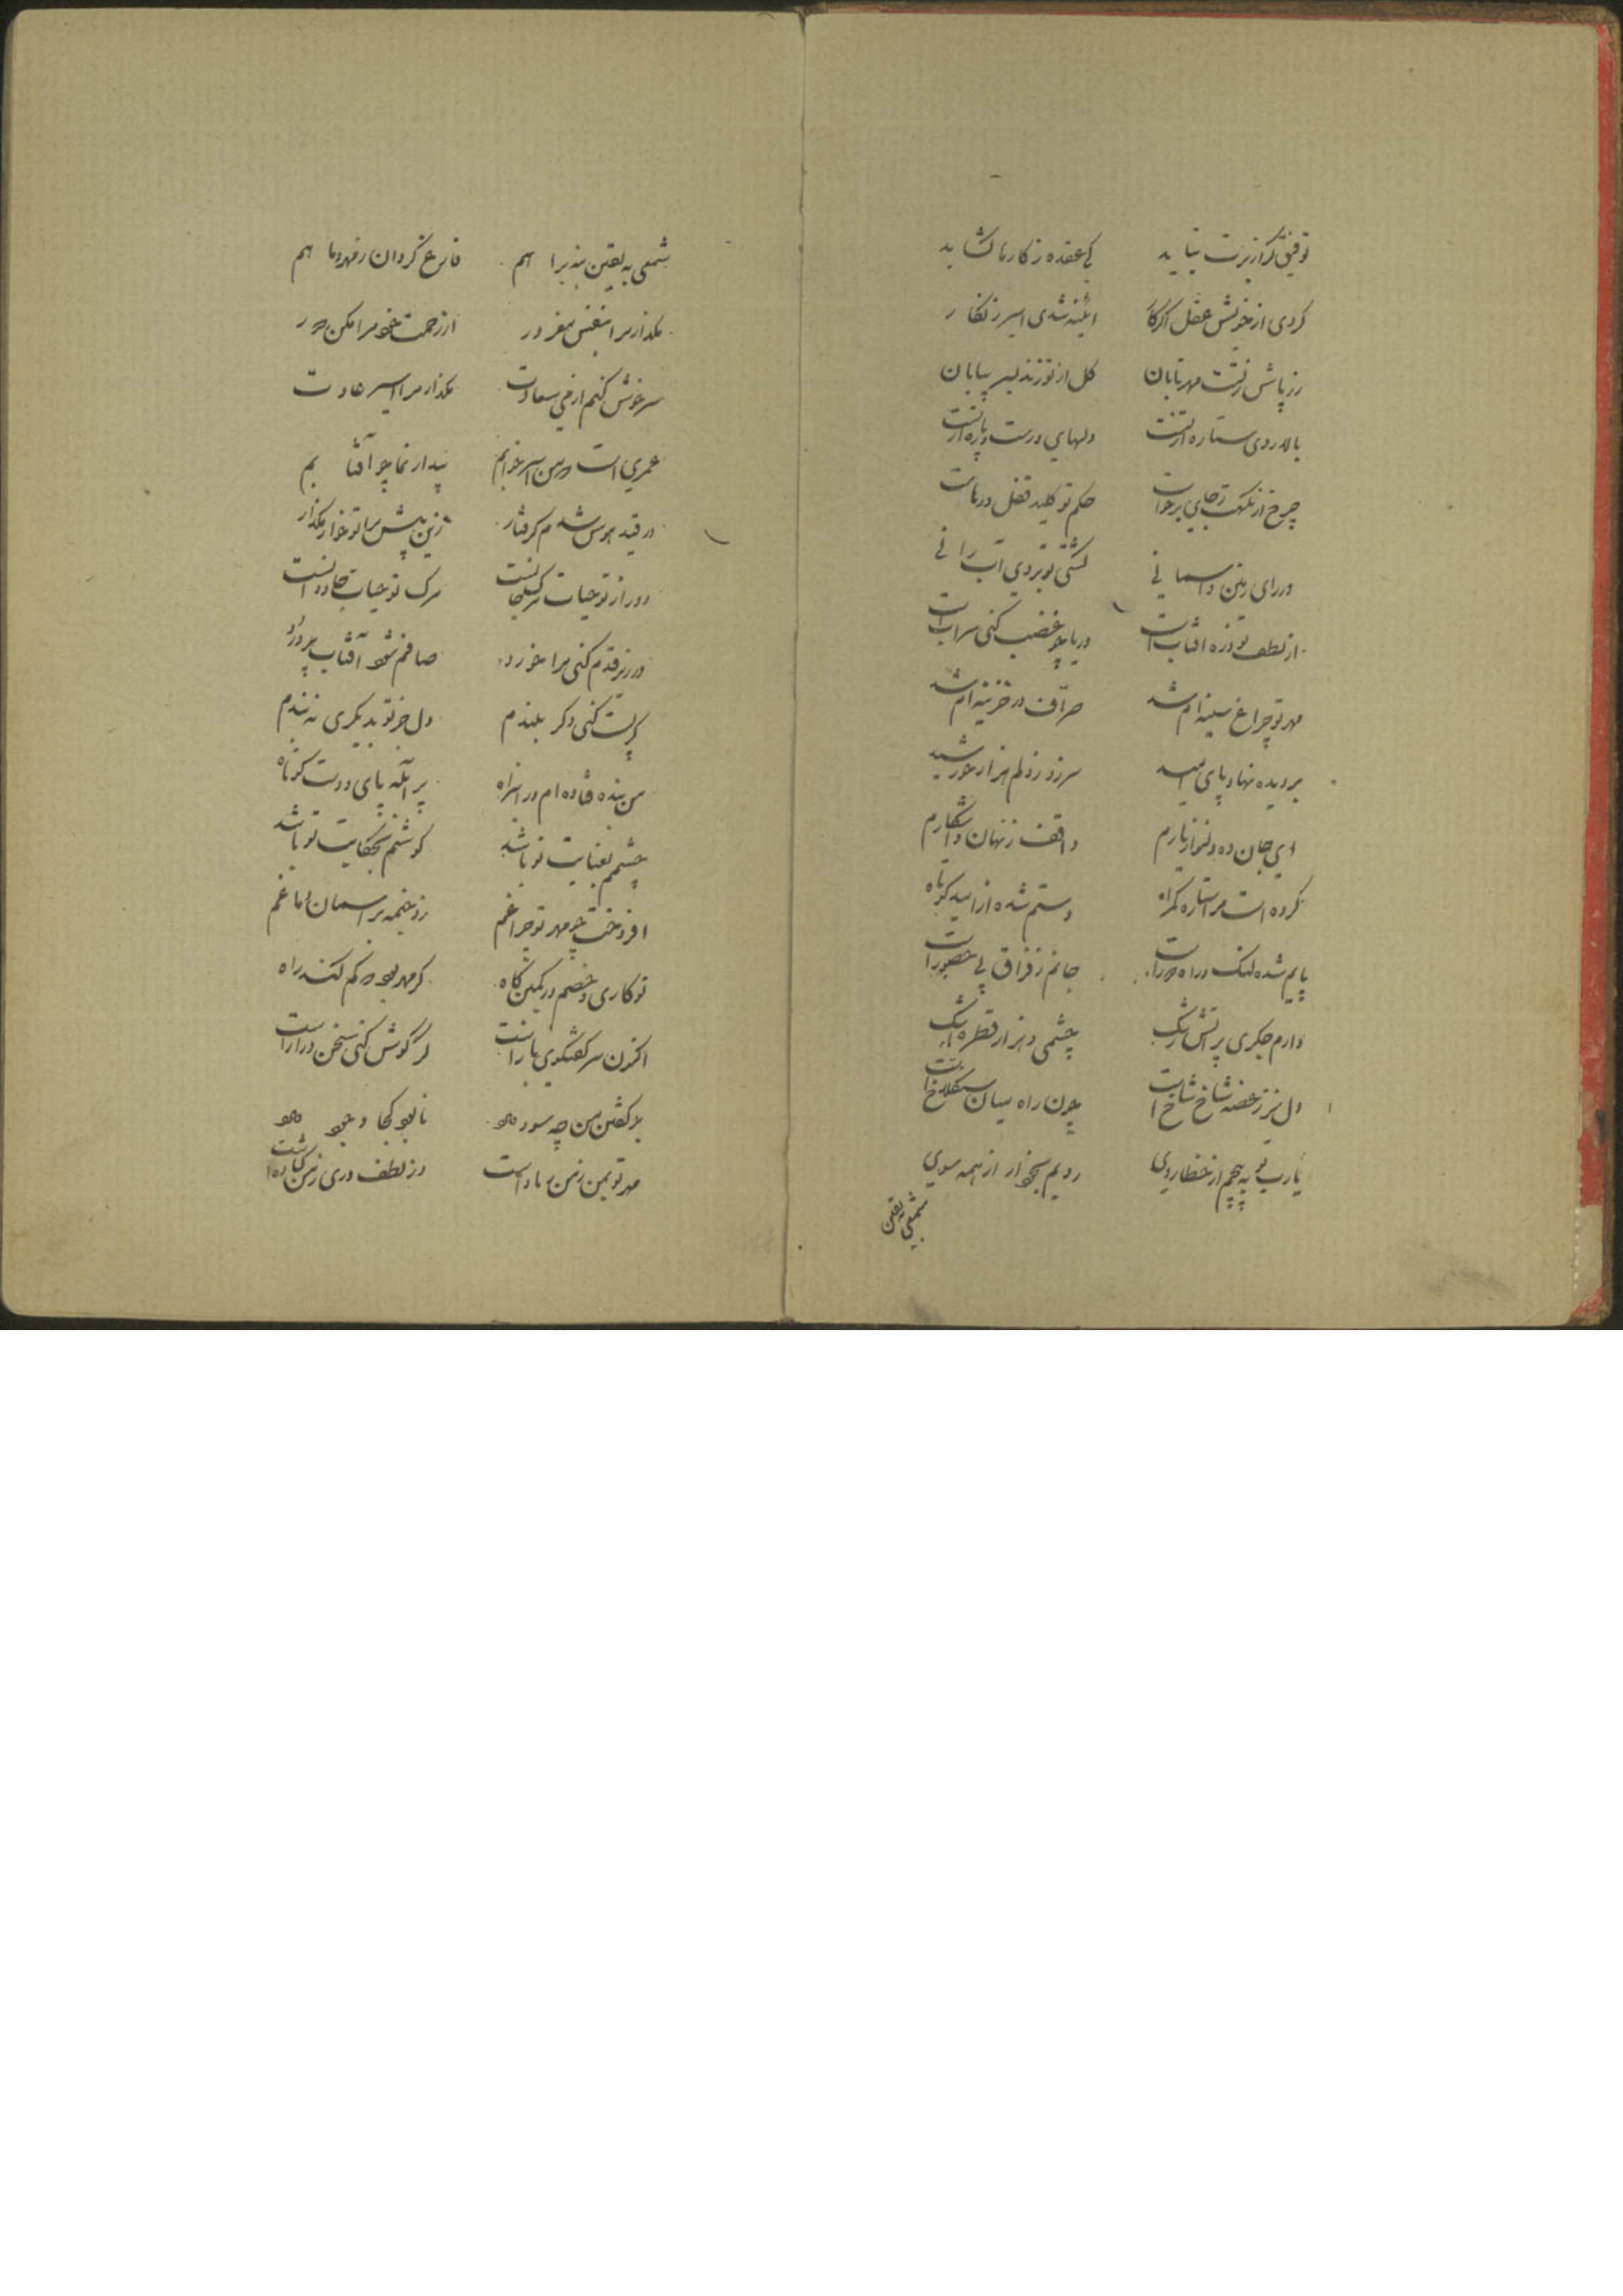 توفیق گر از برت نیاید کی عقده ز کار ما گشاید
کردی از خویش عقل آئینه شدی اسیر زنگار
زر پاش زتست مهر تابان گل از تو زند سر بیابان
بالا روی ستاره از تست دلهای درست و پاره از تست
چرخ از نگهت بجای برخاست حکم تو کلید قفل دریاست
دررای زمین و آسمانی کشتی تو بروی آب رانی
از لطف تو ذره آفتاب است دریا چو غضب کنی سراب است
مهر تو چراغ سینه ام شد صراف در خزینه ام شد
بر دیده نهاد پای امید سر زد ز دلم هزار خورشید
ای جان ده و دلنواز یارم واقف ز نهان و آشکارم
کرده است مرا ستاره گمراه دستم شده از امید کوتاه
پایم شده لنگ و راه دور است جانم ز فراق بی حضور است
دارم جگری پر آتش رشک چشمی و هزار قطره اشک
دل نیز ز غصه شاخ شاخ است چون راه میان سنگلاخ است
یارب تو به پیچم از خطا روی رویم بخود آر از همه سوی
شمعی یقین
شمعی به یقین بنه براهم فارغ گردان ز مهر و ماهم
مگذار مرا بنفس مغرور از رحمت خود مرا مکن دور
سرخوش کنم از می سعادت مگذار مرا اسیر عادت
عمری است که من اسیر خوابم بیدار نما چو آفتابم
در قید هوس شدم گرفتار زین بیش مرا تو خوار مگذار
دور از تو حیات مرگ جانست مرگ تو حیات جاودانست
در زیر قدم کنی مرا خورد صافم شود آفتاب پر درد
گر پست کنی و گر بلندم دل جز تو بدیگری نه بندم
من بنده فتاده ام در این راه پر آبله پای و دست کوتاه
چشمم بعنایت تو باشد گوشم بحکایت تو باشد
افروخت چو مهر تو چراغم زد خیمه بر آسمان دماغم
تو کاری و خصم در کمین گاه گر مهر بود کم کند راه
اکنون سر گفتگوی با تست گر گوش کنی سخن دراز است
با گفتن من چه سود دهد نابود کجا وجود دهد
مهر تو بمن ز من زیاد است وز لطف دری ز من گشاده است